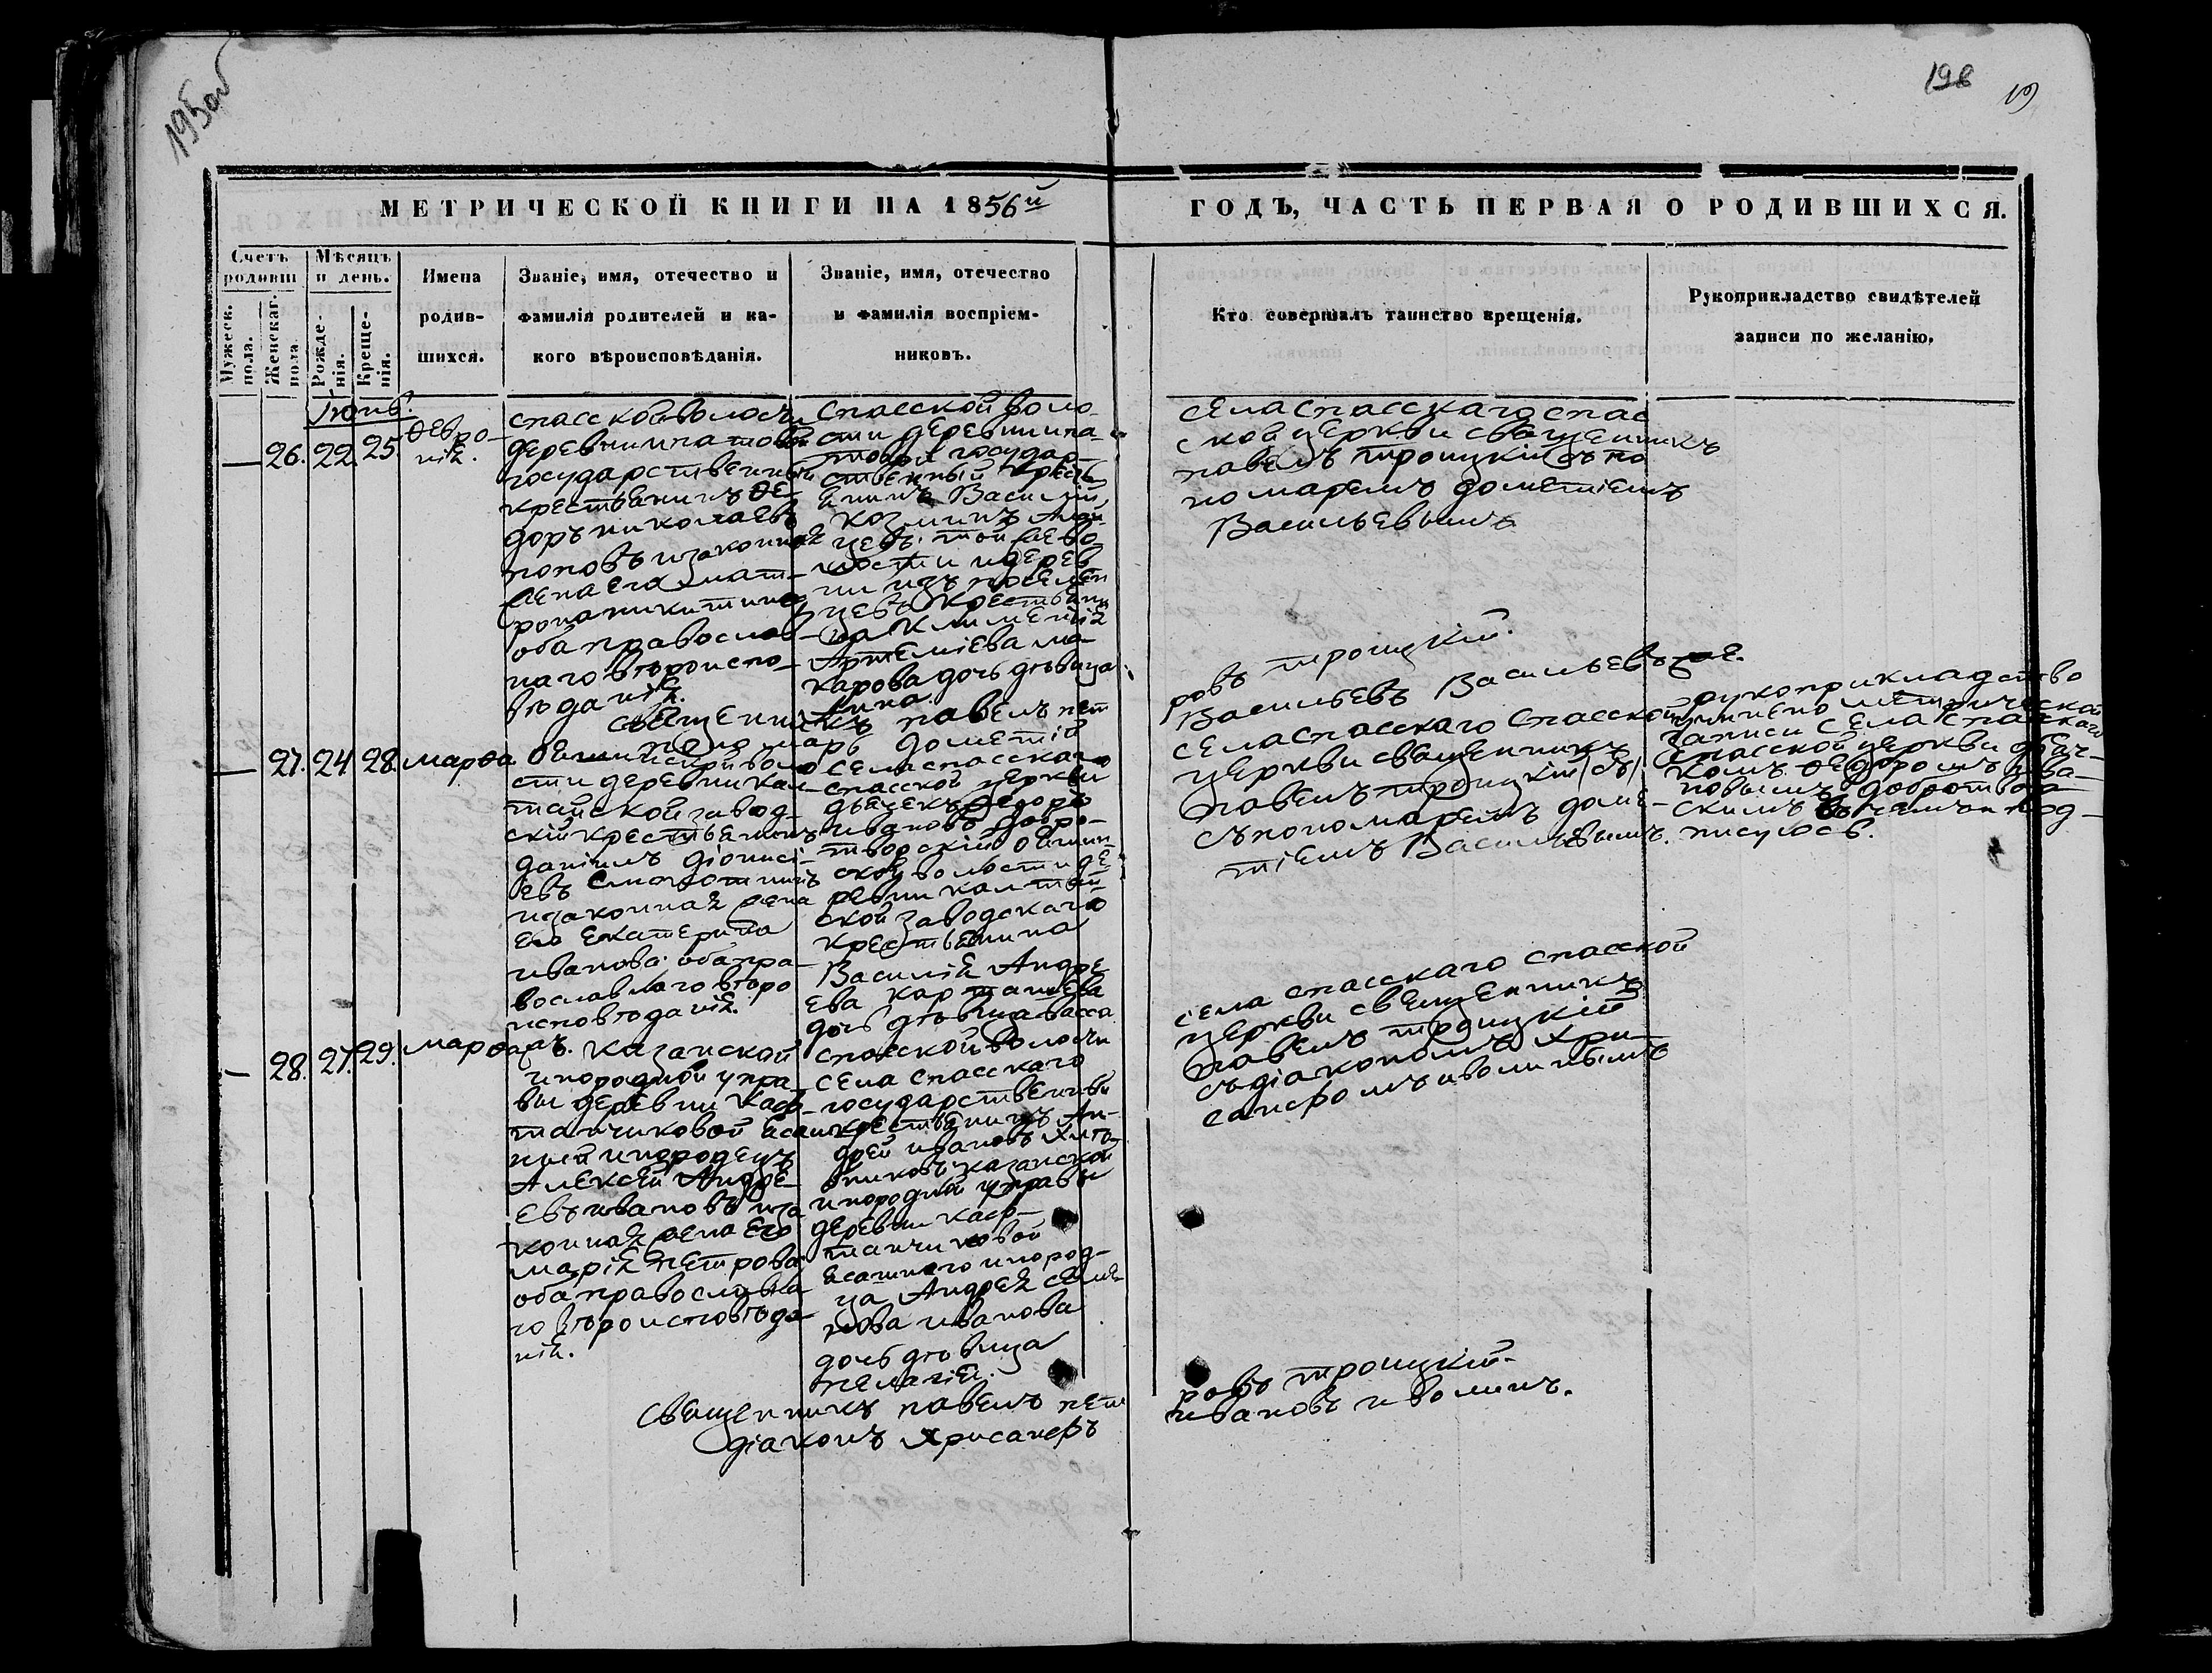 195об
198
19
МЕТРИЧЕСКОЙ КНИГИ НА 1856й
ГОДЪ, ЧАСТЬ ПЕРВАЯ О РОДИВШИХСЯ.
Счетъ родивш
Мужеск. пола.
Женскаг. пола.
Мѣсяцъ и день.
Рожде-нія.
Креще-нія.
Имена
родив-
шихся.
Званіе, имя, отечество и
фамилія родителей и ка-
кого вѣроисповѣданія.
Званіе, имя, отечество
и фамилія воспріем-
никовъ.
Кто совершалъ таинство крещенія.
Рукоприкладство свидѣтелей
записи по желанію.
Іюнь.
— 26. 22. 25.
Февро-
нія.
Спасской волости
деревни
государственный
крестьянинъ Фе-
доръ Николаевъ
Поповъ и законная
жена его Мат-
рона Никитина
оба православ-
наго вѣроиспо-
вѣданія.
Спасской воло-
сти деревни
государ-
ственный кресть
янинъ Василій
Козминъ
той же во-
лости и дерев
ни изъ поселен
цевъ крестьяни
на Климентія
Артеміева Ма-
карова дочь дѣвица
Анна.
Села Спасскаго Спас
ской церкви священникъ
Павелъ Троицкій съ по
номаремъ Дометіемъ
Васильевымъ
Священникъ Павелъ Пет
ровъ Троицкій.
Пономарь Дометій
Васильевъ Васильевъ же.
— 27. 24. 28. Марѳа
волo
сти деревни Кал-
тайской завод-
скій крестьянинъ
Даніилъ Діонисі-
евъ Смокотинъ
и законная жена
его Екатерина
Иванова оба пра-
вославнаго вѣро
исповѣданія.
Села Спасскаго
Спасской церкви
дьячекъ Федоръ
Ивановъ Добро-
творскій
ской волости де
ревни Калтай
ской заводскаго
крестьянина
Василія Андре
ева Карташева
дочь дѣвица Васса
Села Спасскаго Спасской
церкви священникъ
Павелъ Троицкій (съ)
съ пономаремъ Доме-
тіемъ Васильевымъ.
рукоприкладство
метрической
записи Села Спасскаго
Спасской церкви дьяч-
комъ Федоромъ Ива-
новымъ Добротвор-
скимъ въ чемъ и под-
писуюсь.
— 28. 27. 29. Марѳа
Казанской
инородной упра-
вы деревни Каф-
танчиковой ясаш
ный инородецъ
Алексѣй Андре-
евъ Ивановъ и за
конная жена его
Марія Петрова
оба православна
го вѣроисповѣда-
нія.
Спасской волости
села Спасскаго
государственный
крестьянинъ Ан-
дрей Ивановъ
Казанской
инородной управы
деревни Каф-
танчиковой
ясашнаго инород-
ца Андрея Семе
нова Иванова
дочь дѣвица
Пелагія.
Села Спасскаго Спасской
церкви священникъ
Павелъ Троицкій
съ діакономъ Хри-
санфомъ Иволинымъ
Священникъ Павелъ Пет
ровъ Троицкій
Діаконъ Хрисанфъ
Ивановъ Иволинъ.